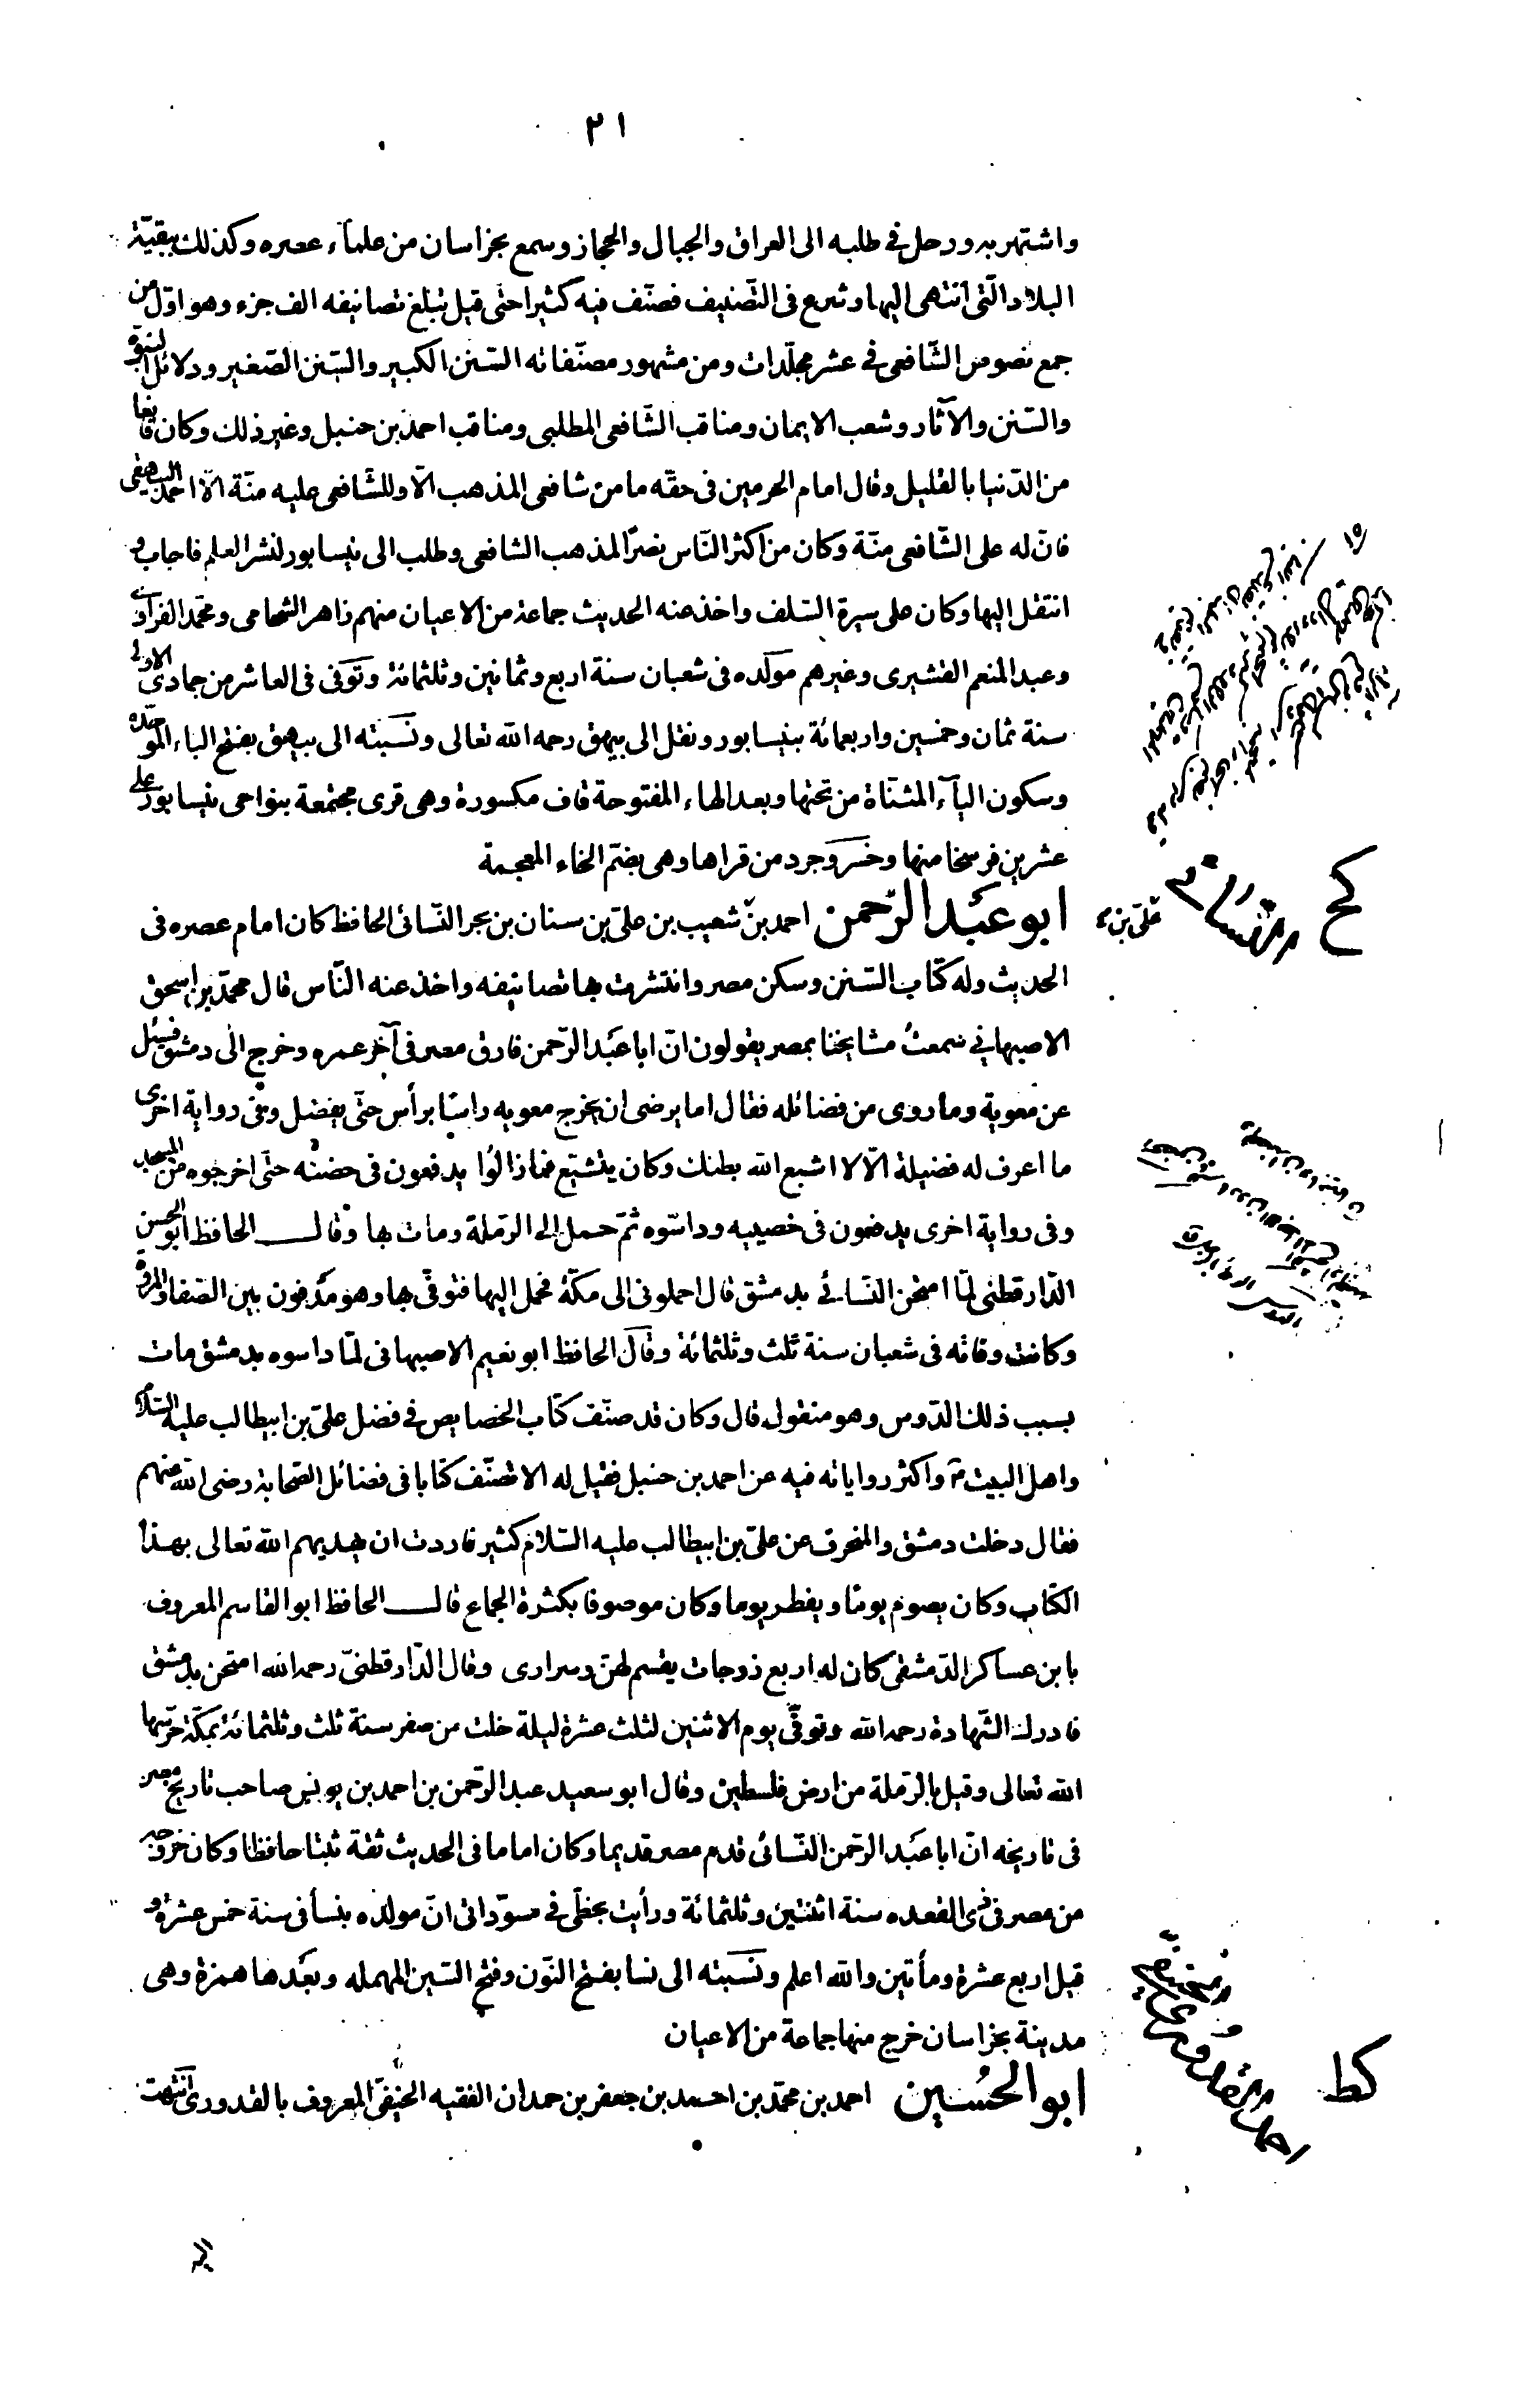 ٢١
واشتهر به ورحل في طلبه الى العراق والجبال والحجاز وسمع بخراسان من علمآء عصره وكذلك ببقيّة
البلاد الّتى انتهى اليها وشرع فى التّصنيف فصنّف فيه كثيرا حتّى قيل تبلغ تصانيفه الف جزء وهو اوّل من
جمع نصوص الشّافعى في عشر مجلّدات ومن مشهور مصنّفاته السّنن الكبير والسّنن الصّغير ودلائل النبوّة
والسّنن والآثار وشعب الايمان ومناقب الشّافعى المطلبى ومناقب احمد بن حنبل وغير ذلك وكان قانعا
من الدّنيا بالقليل وقال امام الحرمين فى حقّه ما من شافعى المذهب الّا وللشّافعى عليه منّة الّا احمد البيهقى
فانّ له على الشّافعى منّة وكان من اكثر النّاس نصرًا لمذهب الشافعى وطلب الى نيسابور لنشر العلم فاجاب و
انتقل اليها وكان على سيرة السّلف واخذ عنه الحديث جماعة من الاعيان منهم زاهر الشحامى ومحمّد الفراوى
وعبد المنعم القشيرى وغيرهم مولده فى شعبان سنة اربع وثمانين وثلثمائة وتوّفى فى العاشر من جمادى الاولى
سنة ثمان وخمسين واربعمائة بنيسابور ونقل الى بيهق رحمه الله تعالى ونسبته الى بيهق بفتح الباء الموحّده
وسكون اليآء المثنّاة من تحتها وبعد الهاء المفتوحة قاف مكسورة وهى قرى مجتمعة بنواحى نيسابور على
عشرين فرسخا منها وخسروجرد من قراها وهى بضمّ الخاء المعجمة
كح
ابو عبد الرّحمن احمد بن شعيب بن علىّ بن سنان بن بحر النّسائى الحافظ كان امام عصره فى
علىّ بن
الحديث وله كتاب السّنن وسكن مصر وانتشرت بها تصانيفه واخذ عنه النّاس قال محمّد بن اسحق
الاصبهاني سمعت مشايخنا بمصر يقولون انّ ابا عبد الرّحمن فارق مصر فى آخر عمره وخرج الى دمشق فسئل
عن معوية وما روى من فضائله فقال اما يرضى ان يخرج معويه راسًا برأس حتّى يفضل وفى رواية اخرى
ما اعرف له فضيلة الّا لا اشبع الله بطنك وكان يتشيّع فما زالوا يدفعون فى حضنه حتّى اخرجوه من المسجد
وفى رواية اخرى يدفعون فى خصييه وداسّوه ثمّ حمل إلى الرّملة ومات بها وقال الحافظ ابو الحسن
الدّارقطنى لمّا امتحن النّسائي بدمشق قال احملونى الى مكّة فحمل اليها فتوفّى بها وهو مدفون بين الصّفا والمروة
وكانت وفاته فى شعبان سنة ثلث وثلثمائة وقال الحافظ ابو نعيم الاصبهانى لمّا داسوه بدمشق مات
بسبب ذلك الدّوس وهو منقول قال وكان قد صنّف كتاب الخصايص فى فضل علىّ بن ابيطالب عليه السّلام
واهل البيت واكثر رواياته فيه عن احمد بن حنبل فقيل له الا تصنّف كتابا فى فضائل الصّحابة رضى الله عنهم
فقال دخلت دمشق والمنحرف عن علىّ بن ابيطالب عليه السّلام كثير فاردت ان يهديهم الله تعالى بهذا
الكتاب وكان يصوم يومًا ويفطر يوما وكان موصوفا بكثرة الجماع قال الحافظ ابو القاسم المعروف
بابن عساكر الدّمشقى كان له اربع زوجات يقسم لهنّ وسرارى وقال الدّارقطنىّ رحمه الله امتحن بدمشق
فادرك الشّهادة رحمه الله وتوفّى يوم الاثنين لثلث عشرة ليلة خلت من صفر سنة ثلث وثلثمائة بمكّة حرّسها
الله تعالى وقيل بالرّملة من ارض فلسطين وقال ابو سعيد عبد الرّحمن بن احمد بن يونس صاحب تاريخ مصر
فى تاريخه انّ ابا عبد الرّحمن النّسائى قدم مصر قديما وكان اماما فى الحديث ثقة ثبتا حافظا وكان خروجه
من مصر فى ذى القعده سنة اثنتين وثلثمائة ورأيت بخطّى فى مسوّداتى انّ مولده بنسأ فى سنة خمس عشرة و
قيل اربع عشرة ومأتين والله اعلم ونسبته الى نسا بفتح النّون وفتح السّين المهمله وبعدها همزة وهى
مدينة بخراسان خرج منها جماعة من الاعيان
كط
ابو الحُسين احمد بن محمّد بن احمد بن جعفر بن حمدان الفقيه الحنفىّ المعروف بالقدورى انتهت